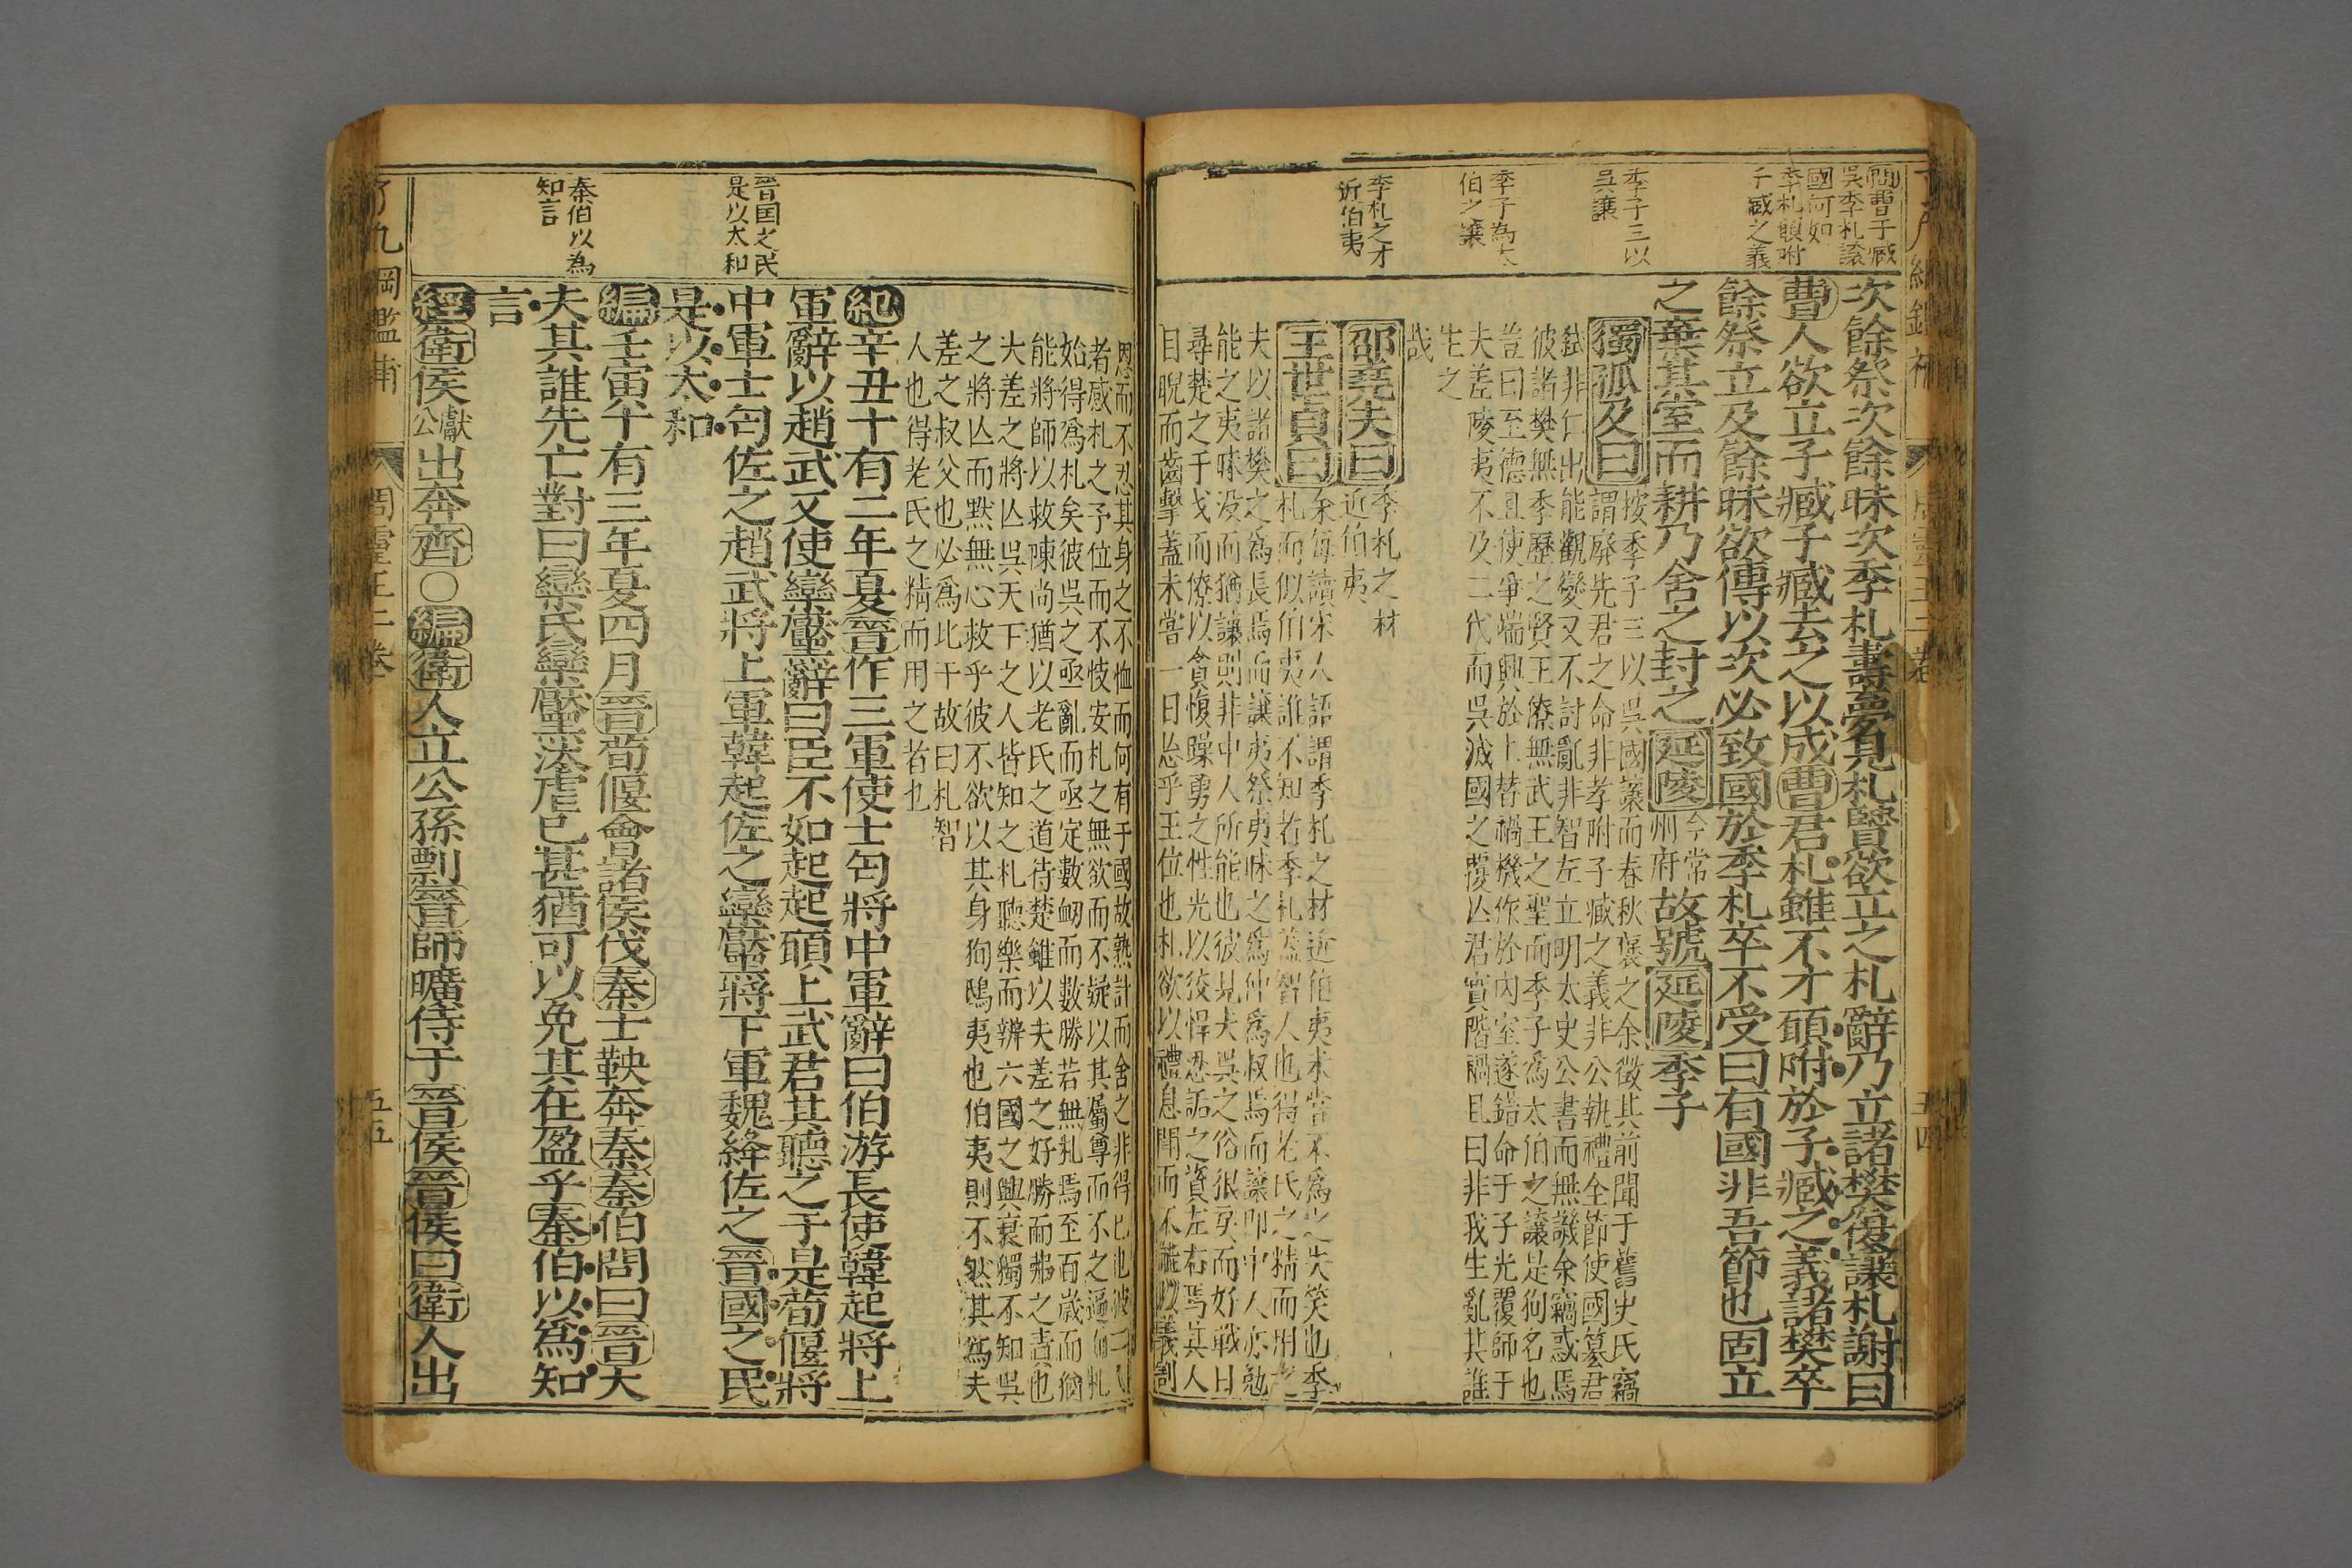 問曹子臧
吳季札讓
國何如
季札願附
子臧之義
季子三以
吳讓
季子為太
伯之讓
季札之才
近伯夷
次餘祭次餘昧次季札壽夢見札賢欲立之札辭乃立諸樊後讓札謝曰
曹人欲立子臧子臧去之以成曹君札雖不才願附於子臧之義諸樊卒
餘祭立及餘昧欲傳以次必致國於季札卒不受曰有國非吾節也固立
之棄其室而耕乃舍之封之延陵今常州府故號延陵季子
獨孤及曰按季子三以吳國讓而春秋襃之余徵其前聞于舊史氏竊
謂廢先君之命非孝附子臧之義非公執禮全節使國篡君
弒非仁出能觀變又不討亂非智左立明太史公書而無譏余竊惑焉
彼諸樊無季歷之賢王僚無武王之聖而季子為太伯之讓是徇名也
豈曰至德且使爭端興於上替禍機作於內室遂錯命于子光覆師于
夫差陵夷不及二代而吳滅國之覆亾君實階禍且曰非我生亂其誰
生之
哉
邵堯夫曰季札之材
近伯夷
王世貞曰余每讀宋人語謂季札之材近伯夷未嘗不為之失笑也季
札而似伯夷誰不知若季札蓋智人也得老氏之精而用之
夫以諸樊之為長焉而讓夷祭夷昧之為仲為叔焉而讓即中人亦勉
能之夷昧没而猶讓則非中人所能也彼見夫吳之俗很戾而好戰日
尋楚之于戈而僚以貪愎躁勇之性光以狡悍忍詬之資左右焉其人
目睨而齒擊蓋未嘗一日忘乎王位也札欲以禮息閧而不能以義割
恩而不忍其身之不恤而何有于國故熟計而舍之非得已也彼二人
者感札之予位而不忮安札之無欲而不疑以其屬尊而不之逼而札
始得為札矣彼吳之亟亂而亟定數衂而數勝若無札焉至百歲而猶
能將師以救陳尚猶以老氏之道待楚雖以夫差之好勝而弗之責也
大差之將亾吳天下之人皆知之札聽樂而辨六國之興衰獨不知吳
之將亾而默無心救乎彼不欲以其身狥鴟夷也伯夷則不然其為夫
差之叔父也必為比干故曰札智
人也得老氏之精而用之者也
晉国之民
是以太和
秦伯以為
知言
紀辛丑十有二年夏晉作三軍使士匄將中軍辭曰伯游長使韓起將上
軍辭以趙武又使欒黶辭曰臣不如起起願上武君其聽之于是荀偃將
中軍士匄佐之趙武將上軍韓起佐之欒黶將下軍魏絳佐之晉國之民
是以太和
編壬寅十有三年夏四月晉荀偃會諸侯伐秦士鞅奔秦秦伯問曰晉大
夫其誰先亡對曰欒氏欒黶汰虐已甚猶可以免其在盈乎秦伯以為知
言
經衛侯獻公出奔齊○編衛人立公孫剽晉師曠侍于晉侯晉侯曰衛人出
了凡綱鑑補
周靈王二卷
五四
了凡綱鑑補
周靈王二卷
五五